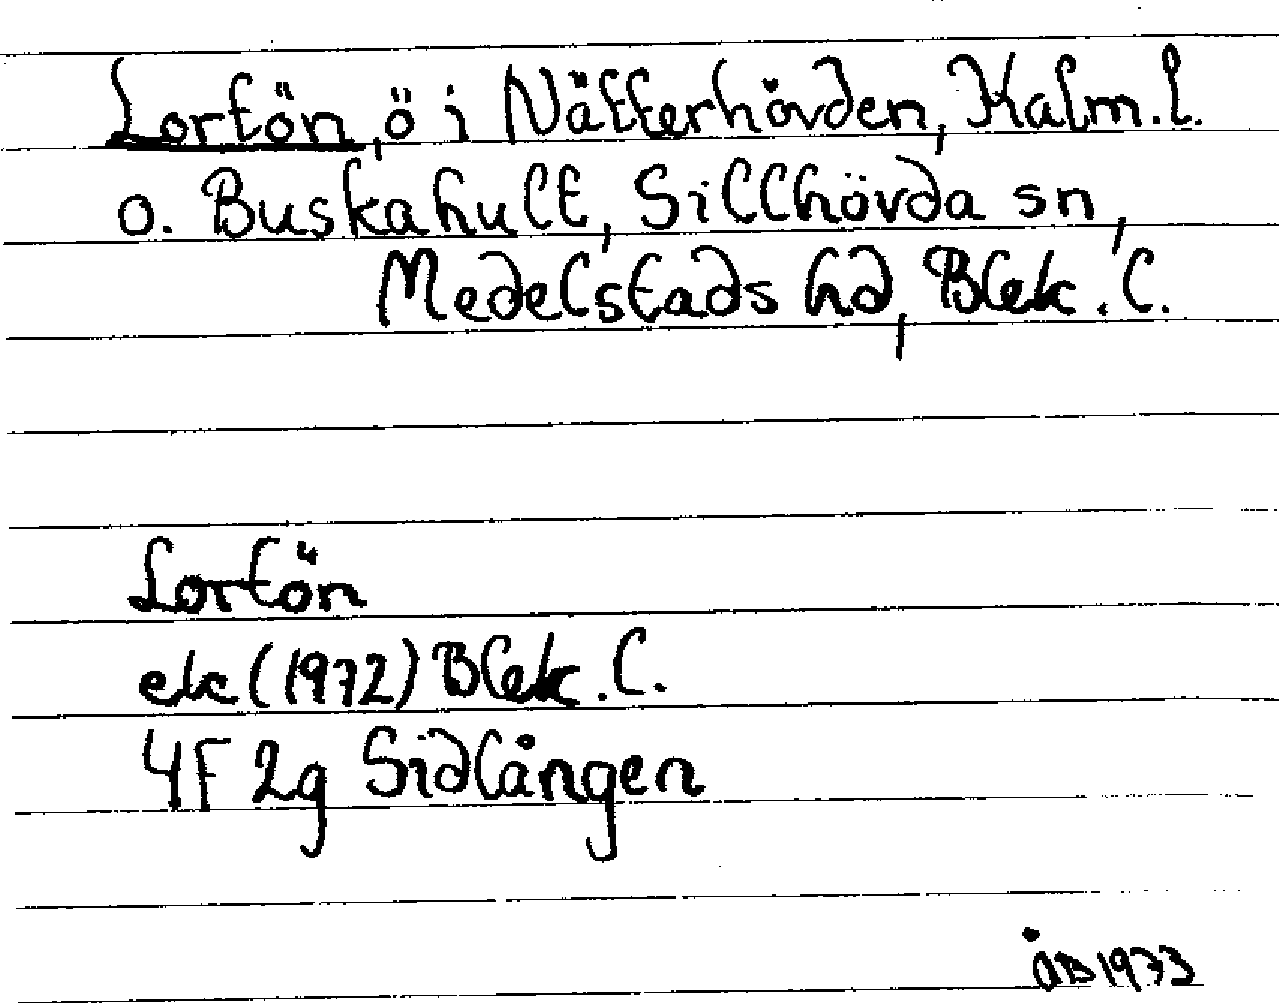 Lortön, ö i Nätterhövden, Kalm.l.
o. Buskahult, Sillhövda sn,
Medelstads hd, Blek.l.
Lortön
ek (1972) Blek.l.
4F 2g Sidlången
ÅB 1973